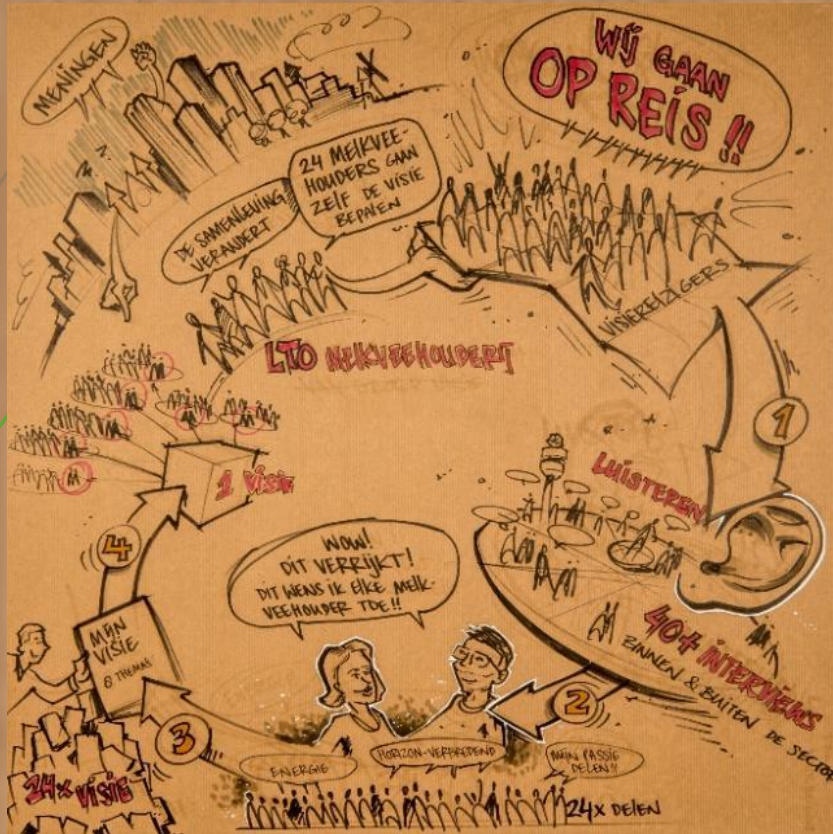 MENINGEN
WIJ GAAN
OP REIS!!
DE SAMENLEVING
VERANDERT
24 MELKVEE-
HOUDERS GAAN
ZELF DE VISIE
BEPALEN
VISIEREIZIGERS
LTO MELKVEEHOUDERIJ
1
LUISTEREN
40+ INTERVIEWS
BINNEN & BUITEN DE SECTOR
2
WOW!
DIT VERRIJKT!
DIT WENS IK ELKE MELK-
VEEHOUDER TOE!!
ENERGIE
HORIZON-VERBREDEND
MIJN PASSIE
DELEN!!
24x DELEN
3
MIJN
VISIE
8 THEMAS
24x VISIE
4
1 VISIE